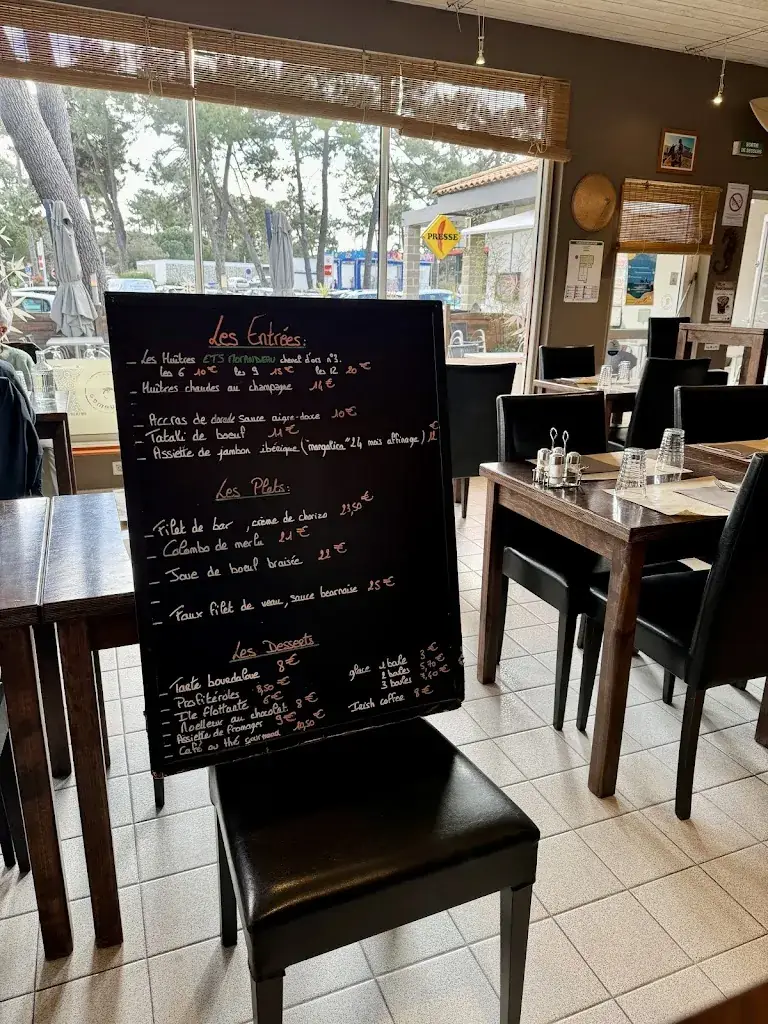 Les Entrées:
- Les Huîtres ETS MORANDEAU cheval d'ors n°3.
les 6 10€ les 9 15€ les 12 20€
- Huîtres chaudes au champagne 14€
- Accras de daurade sauce aigre-doxe 10€
- Tataki de boeuf 11€
- Assiette de jambon ibérique ("mangalica" 24 mois affinage)
Les Plats:
- Filet de bar, crème de chorizo 23,50€
- Colombo de merlu 21€
- Joue de boeuf braisée 22€
- Faux filet de veau, sauce bearnaise 25€
Les Desserts
- Tarte bourdaloue 8€
- Profitéroles 8,50€
- Ile flottante 6€
- Moelleux au chocolat 8€
- Assiette de fromages 9€
- Café ou thé gourmand 10,50€
glace 1 boule 3€
2 boules 5,70€
3 boules 7,60€
Irish coffee 8€
PRESSE
SORTIE DE SECOURS